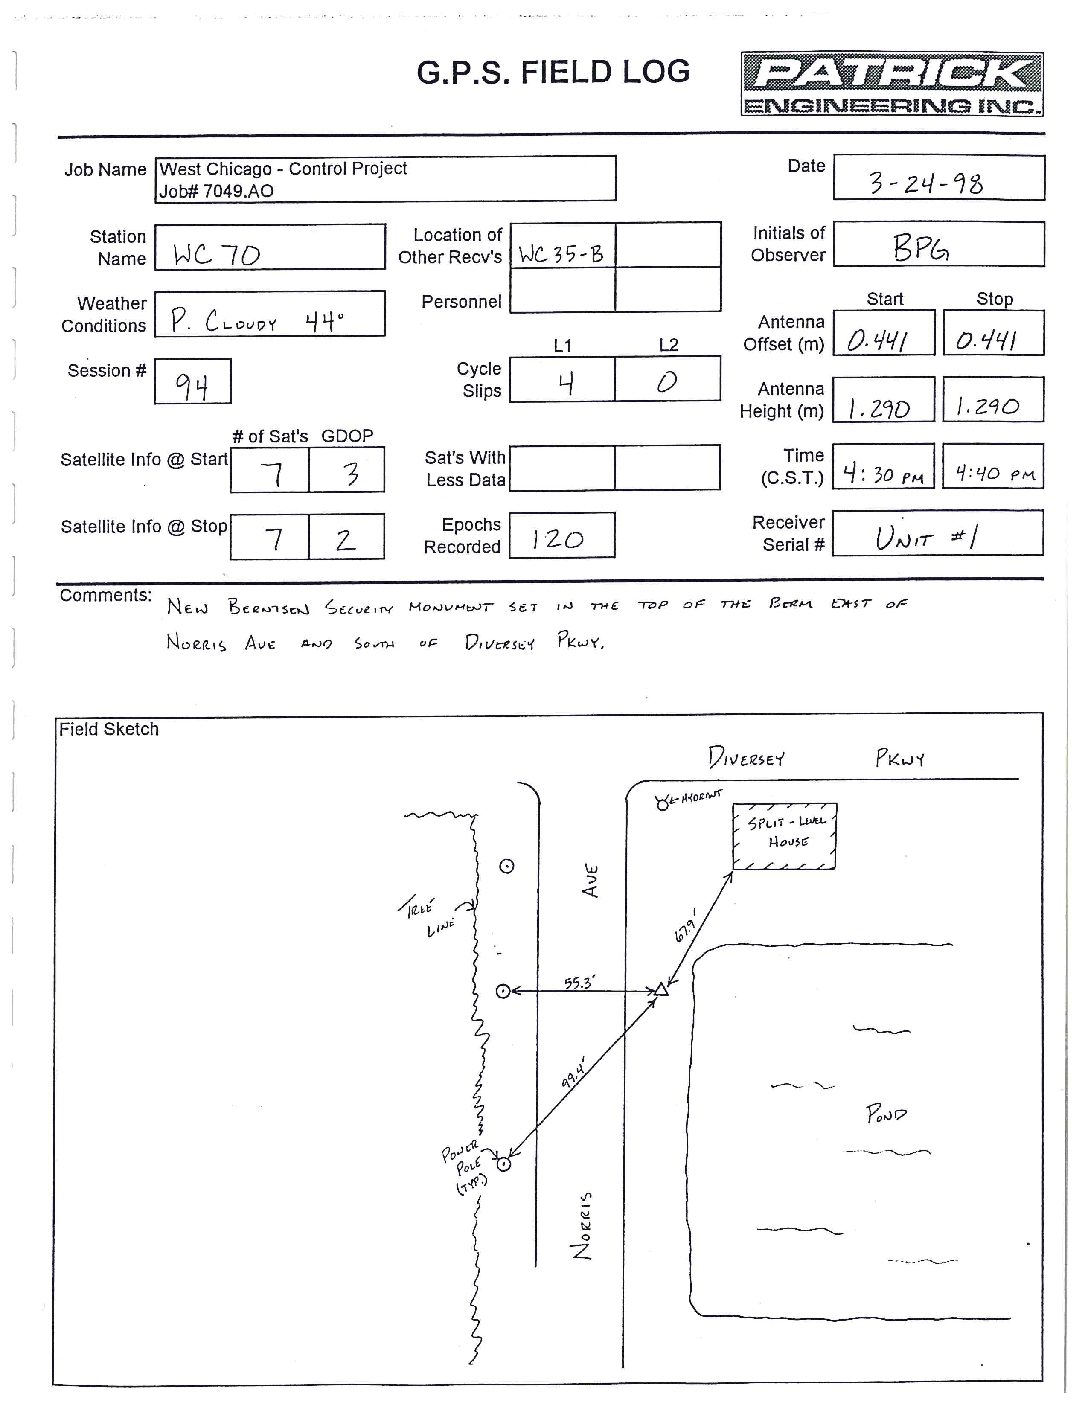 G.P.S. FIELD LOG
PATRICK
ENGINEERING INC.
Job Name
West Chicago - Control Project
Job# 7049.AO
Date
3-24-98
Station
Name
WC 70
Location of
Other Recv's
WC 35-B
Initials of
Observer
BPG
Weather
Conditions
P. CLOUDY 44°
Personnel
Start Stop
Antenna
Offset (m)
0.441 0.441
Session #
94
L1 L2
Cycle
Slips
4 0
Antenna
Height (m)
1.290 1.290
# of Sat's GDOP
Satellite Info @ Start
7 3
Sat's With
Less Data
Time
(C.S.T.)
4:30 PM 4:40 PM
Satellite Info @ Stop
7 2
Epochs
Recorded
120
Receiver
Serial #
UNIT #1
Comments:
NEW BERNTSEN SECURITY MONUMENT SET IN THE TOP OF THE BERM EAST OF
NORRIS AVE AND SOUTH OF DIVERSEY PKWY.
Field Sketch
DIVERSEY PKWY
HYDRANT
SPLIT-LEVEL
HOUSE
AVE
TREE
LINE
67.9'
55.3'
99.4'
POND
POWER
POLE
(TYP.)
NORRIS